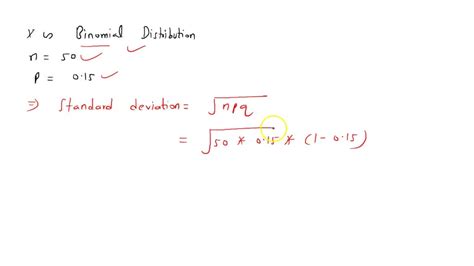 X ∽ Binomial Distribution
n = 50 ✓ ✓
p = 0.15 ✓
⇒ Standard deviation = √npq
= √50 * 0.15 * (1 - 0.15)